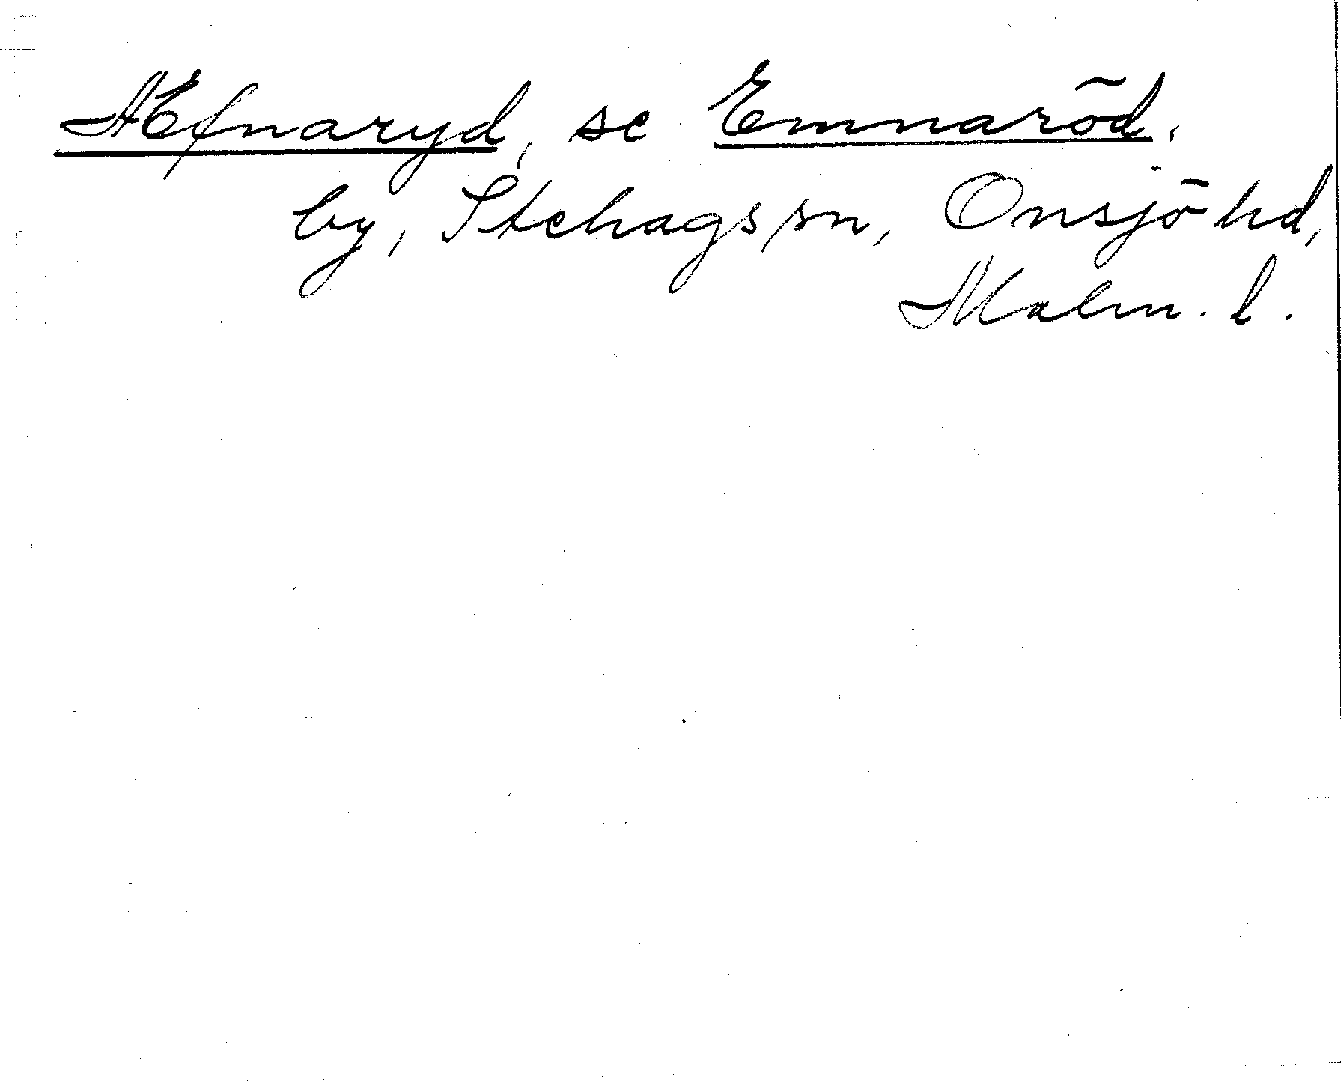 Æfnaryd, se Emnaröd.
by, Stehags sn, Onsjö hd,
Malm. l.